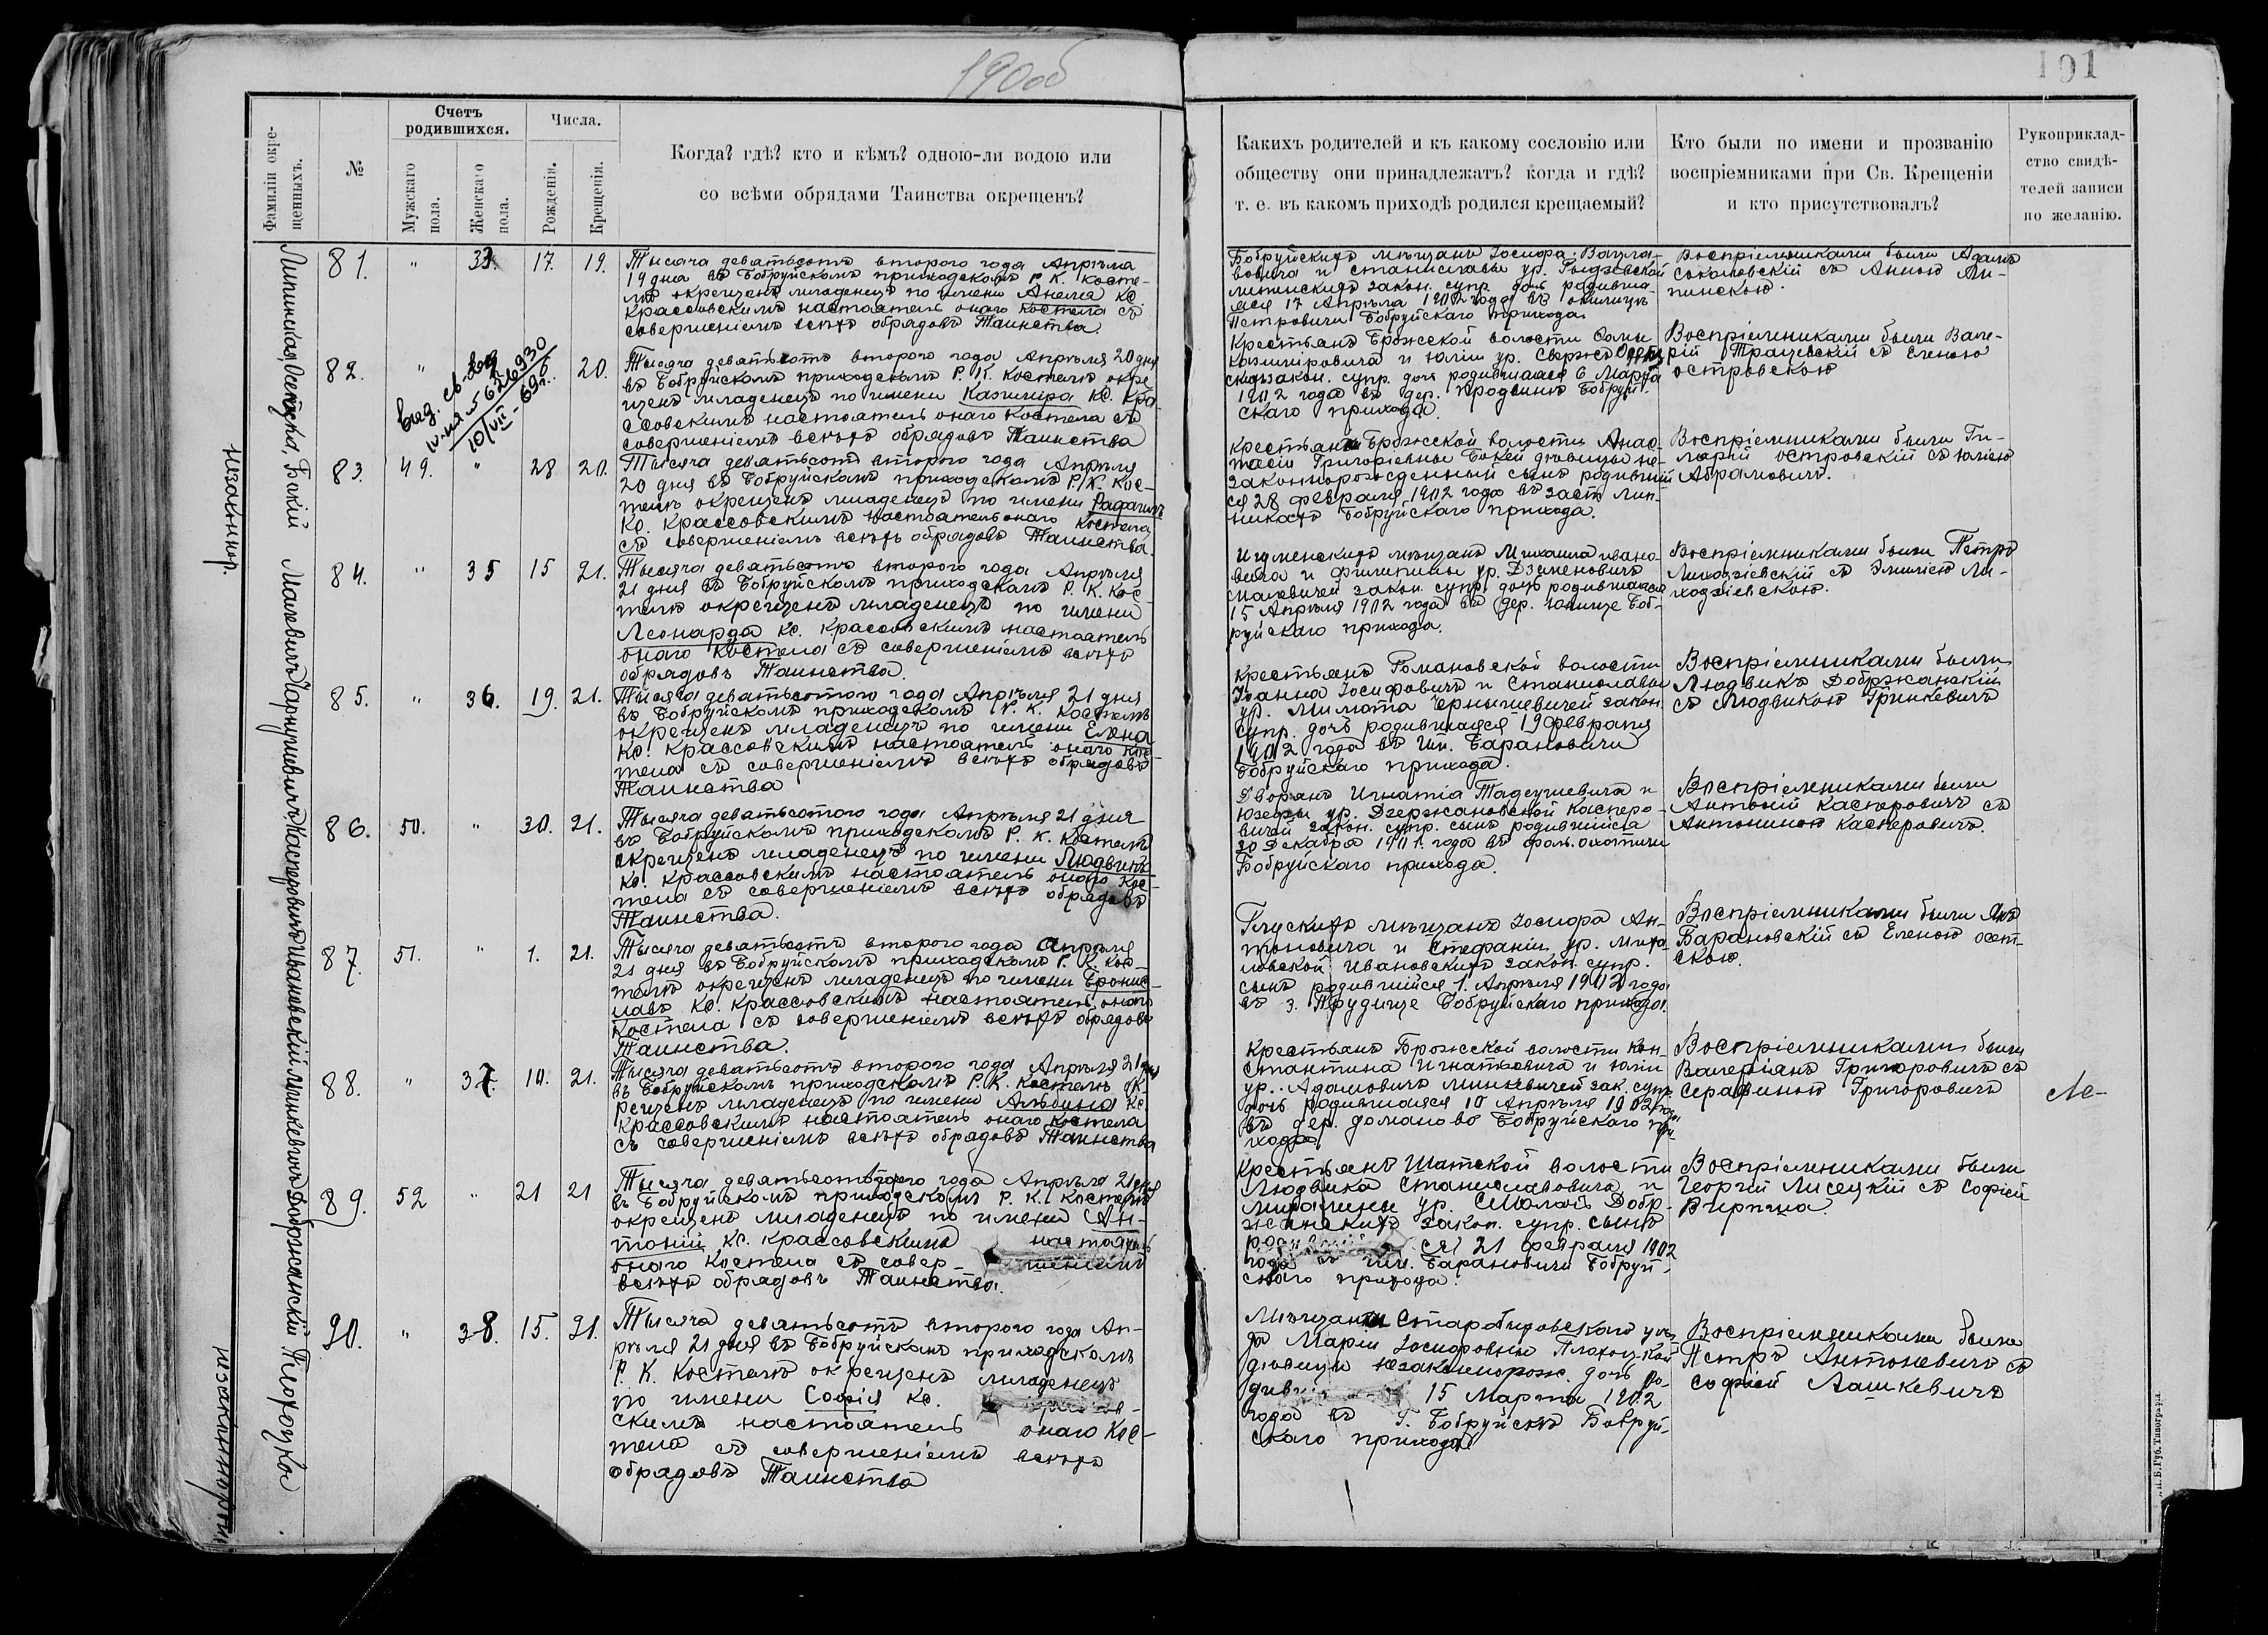 190об
101
Фамиліи окре-
щенныхъ.
№
Счетъ
родившихся.
Мужскаго
пола.
Женскаго
пола.
Числа.
Рожденія.
Крещенія.
Когда? гдѣ? кто и кѣмъ? одною-ли водою или
со всѣми обрядами Таинства окрещенъ?
Каких родителей и къ какому сословію или
обществу они принадлежатъ? когда и гдѣ?
т. е. въ какомъ приходѣ родился крещаемый?
Кто были по имени и прозванію
воспріемниками при Св. Крещеніи
и кто присутствовалъ?
Рукоприклад-
ство свидѣ-
телей записи
по желанію.
Липинская
81. " 33. 17. 19.
Тысяча девятьсотъ второго года Апрѣля
19 дня въ Бобруйскомъ приходскомъ Р. К. Косте-
лѣ окрещенъ младенецъ по имени Анеля Кс.
Крассовскимъ настоятель онаго Костела съ
совершеніемъ всѣхъ обрядовъ Таинства.
Бобруйскихъ мѣщанъ Іосифа Вацла-
вовича и Станиславы ур.
Липинскихъ закон. супр. дочь родивша-
яся 17 Апрѣля 1902 года въ околицѣ
Петровичи Бобруйскаго прихода.
Воспріемниками были Адамъ
Соколовскій съ Анною Ли-
пинскою.
82. " 20.
выд. св-во
10/VII-69г.
Тысяча девятьсотъ второго года Апрѣля 20 дня
въ Бобруйскомъ приходскомъ Р. К. Костелѣ окре-
щенъ младенецъ по имени Казимира Кс. Кра-
ссовскимъ настоятель онаго Костела съ
совершеніемъ всѣхъ обрядовъ Таинства
Крестьянъ Брожской волости
Казиміровича и Юліи ур.
закон. супр. дочь родившаяся 6 Марта
1902 года въ дер. Продвинѣ Бобруй-
скаго прихода.
Воспріемниками были Вале-
рій Трацевскій съ Еленою
Островскою
Бокій
незаконнор.
83. 49. " 28 20.
Тысяча девятьсотъ второго года Апрѣля
20 дня въ Бобруйскомъ приходскомъ Р. К. Кос-
телѣ окрещенъ младенецъ по имени
Кс. Крассовскимъ настоятель онаго Костела
съ совершеніемъ всѣхъ обрядовъ Таинства.
Крестьянки Брожской волости Анас-
тасіи Григорьевны Бокей дѣвицы не-
законнорожденный сынъ родивший
ся 28 Февраля 1902 года въ заст. Лип-
никахъ Бобруйскаго прихода.
Воспріемниками были Ги-
ларій Островскій съ Юліею
Абрамовичъ.
Малевичъ
84. " 35 15 21.
Тысяча девятьсотъ второго года Апрѣля
21 дня въ Бобруйскомъ приходскомъ Р. К. Кос-
телѣ окрещенъ младенецъ по имени
Леонарда Кс. Крассовскимъ настоятель
онаго Костела съ совершеніемъ всѣхъ
обрядовъ Таинства.
Игуменскихъ мѣщанъ Михаила Ивано-
вича и Филипины ур. Дземеновичъ
Малевичей закон. супр. дочь родившаяся
15 Апрѣля 1902 года въ дер. Боб-
руйскаго прихода.
Воспріемниками были Петръ
Лиходзіевскій съ Эмиліею Ли-
ходзіевскою.
85. " 36. 19. 21.
Тысяча девятьсотого года Апрѣля 21 дня
въ Бобруйскомъ приходскомъ Р. К. Костелѣ
окрещенъ младенецъ по имени Елена
Кс. Крассовскимъ настоятель онаго Кос-
тела съ совершеніемъ всѣхъ обрядовъ
Таинства
Крестьянъ Романовской волости
Іоанна Іосифовича и Станиславы
ур. закон.
супр. дочь родившаяся 19 Февраля
1902 года въ им. Барановичи
Бобруйскаго прихода.
Воспріемниками были
Людвикъ Добржанскій
съ Людвикою Гринкевичъ
Касперовичъ
86. 50. " 30. 21.
Тысяча девятьсотого года Апрѣля 21 дня
въ Бобруйскомъ приходскомъ Р. К. Костелѣ
окрещенъ младенецъ по имени Людвикъ
Кс. Крассовскимъ настоятель онаго Кос-
тела съ совершеніемъ всѣхъ обрядовъ
Таинства.
Дворянъ Игнатія Тадеушевича и
Юзефы ур. Держановской Касперо-
вичей закон. супр. сынъ родившійся
30 Декабря 1901. года въ фольв. Охотичи
Бобруйскаго прихода.
Воспріемниками были
Антоній Касперовичъ съ
Антониною Касперовичъ.
Ивановскій
87. 51. " 1. 21.
Тысяча девятьсотъ второго года Апрѣля
21 дня въ Бобруйскомъ приходскомъ Р. К. Кос-
телѣ окрещенъ младенецъ по имени Бронис-
лавъ Кс. Крассовскимъ настоятель онаго
Костела съ совершеніемъ всѣхъ обрядовъ
Таинства.
Глускихъ мѣщанъ Іосифа Ан-
тоновича и Стефаніи ур. Миха-
ловской Ивановскихъ закон. супр.
сынъ родившійся 1. Апрѣля 1902 года
въ з. Прудище Бобруйскаго прихода.
Воспріемниками были Янъ
Барановскій съ Еленою Осет-
скою.
Минкевичъ
88. " 37. 10. 21.
Тысяча девятьсотъ второго года Апрѣля 21 дня
въ Бобруйскомъ приходскомъ Р. К. Костелѣ ок-
рещенъ младенецъ по имени Альбина Кс.
Крассовскимъ настоятель онаго Костела
съ совершеніемъ всѣхъ обрядовъ Таинства
Крестьянъ Брожской волости Кон-
стантина Игнатьевича и Юліи
ур. Адамовичъ Минкевичей зак. супр.
дочь родившаяся 10 Апрѣля 1902 года
въ дер. Доманово Бобруйскаго при-
хода.
Воспріемниками были
Валеріанъ Григоровичъ съ
Серафиною Григоровичъ
Добржанскій
89. 52 " 21 21
Тысяча девятьсотъ второго года Апрѣля 21 дня
въ Бобруйскомъ приходскомъ Р. К. Костелѣ
окрещенъ младенецъ по имени Ан-
тоній Кс. Крассовскимъ настоятель
онаго Костела съ совер-шеніемъ
всѣхъ обрядовъ Таинства.
Крестьянъ Шатской волости
Людвика Станиславовича и
ур. Добр-
жанскихъ закон. супр. сынъ
ся 21 Февраля 1902
года въ им. Барановичи Бобруй-
скаго прихода.
Воспріемниками были
Георгій Лисецкій съ Софіей
Плохоцка
незаконнорож.
90. " 38. 15. 21.
Тысяча девятьсотъ второго года Ап-
рѣля 21 дня въ Бобруйскомъ приходскомъ
Р. К. Костелѣ окрещенъ младенецъ
по имени Софія Кс. Крассов-
скимъ настоятель онаго Кос-
тела съ совершеніемъ всѣхъ
обрядовъ Таинства
Мѣщанки уѣз-
да Маріи Іосифовны Плохоцкой
дѣвицы незаконнорож. дочь ро-
15 Марта 1902
года въ г. Бобруйскѣ Бобруй-
скаго прихода
Воспріемниками были
Петръ Антоневичъ съ
Софіей Лашкевичъ